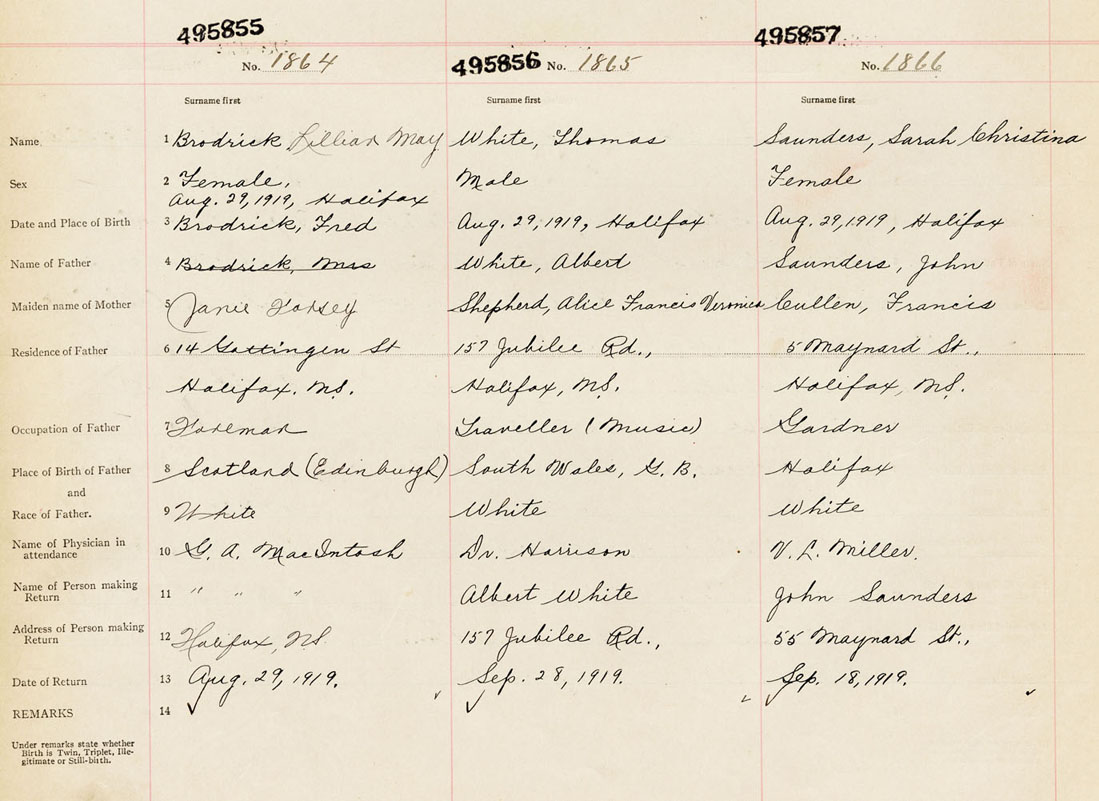 495855 495856 495857
No. 1864 No. 1865 No. 1866
Surname first Surname first Surname first
Name 1 Brodrick Lillian May White, Thomas Saunders, Sarah Christina
Sex 2 Female, Male Female
Aug. 29, 1919, Halifax
Date and Place of Birth 3 Brodrick, Fred Aug. 29, 1919, Halifax Aug. 29, 1919, Halifax
Name of Father 4 Brodrick, Mrs White, Albert Saunders, John
Maiden name of Mother 5 Janie Shepherd, Alice Francis Veronica Cullen, Francis
Residence of Father 6 14 Gottingen St 157 Jubilee Rd., 5 Maynard St.,
Halifax. N.S. Halifax, N.S. Halifax, N.S.
Occupation of Father 7 Foreman Traveller (Music) Gardner
Place of Birth of Father 8 Scotland (Edinburgh) South Wales, G. B. Halifax
and
Race of Father. 9 White White White
Name of Physician in attendance 10 G. A. MacIntosh Dr. Harrison V. L. Miller.
Name of Person making Return 11 " " " Albert White John Saunders
Address of Person making Return 12 Halifax, NS 157 Jubilee Rd., 55 Maynard St.,
Date of Return 13 Aug. 29, 1919. Sep. 28, 1919. Sep. 18, 1919.
REMARKS 14
Under remarks state whether
Birth is Twin, Triplet, Ille-
gitimate or Still-birth.